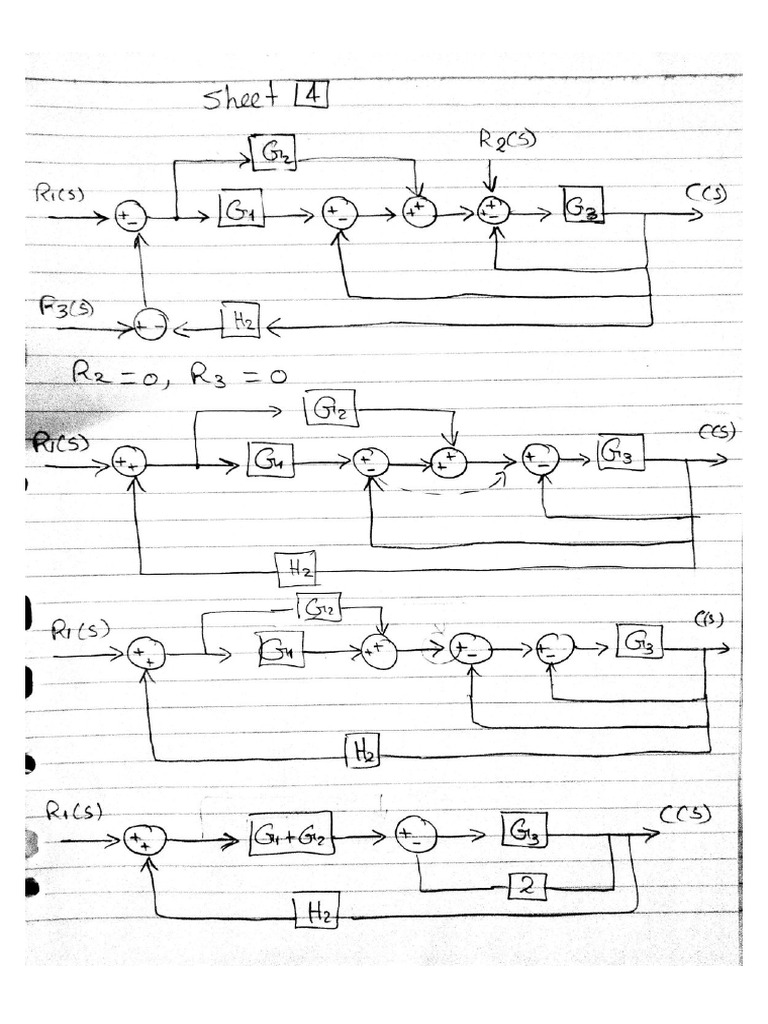 Sheet 4
R2(S)
G2
R1(S) + - G1 + - + + + + - G3 C(S)
R3(S) + - H2
R2 = 0, R3 = 0
G2
R1(S) + + G1 + - + + + - G3 C(S)
H2
G2
R1(S) + + G1 + + + - + - G3 C(S)
H2
R1(S) + + G1+G2 + - G3 C(S)
2
H2